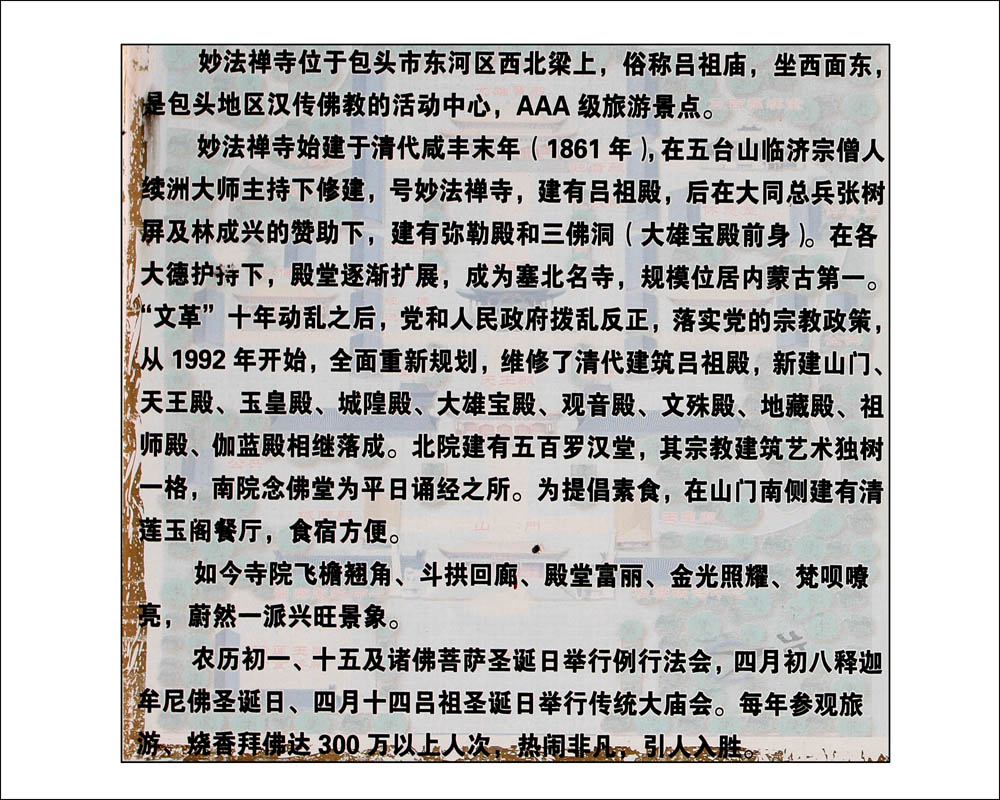 妙法禅寺位于包头市东河区西北梁上，俗称吕祖庙，坐西面东，
是包头地区汉传佛教的活动中心，AAA 级旅游景点。
妙法禅寺始建于清代咸丰末年（1861 年），在五台山临济宗僧人
续洲大师主持下修建，号妙法禅寺，建有吕祖殿，后在大同总兵张树
屏及林成兴的赞助下，建有弥勒殿和三佛洞（大雄宝殿前身）。在各
大德护持下，殿堂逐渐扩展，成为塞北名寺，规模位居内蒙古第一。
“文革”十年动乱之后，党和人民政府拨乱反正，落实党的宗教政策，
从 1992 年开始，全面重新规划，维修了清代建筑吕祖殿，新建山门、
天王殿、玉皇殿、城隍殿、大雄宝殿、观音殿、文殊殿、地藏殿、祖
师殿、伽蓝殿相继落成。北院建有五百罗汉堂，其宗教建筑艺术独树
一格，南院念佛堂为平日诵经之所。为提倡素食，在山门南侧建有清
莲玉阁餐厅，食宿方便。
如今寺院飞檐翘角、斗拱回廊、殿堂富丽、金光照耀、梵呗嘹
亮，蔚然一派兴旺景象。
农历初一、十五及诸佛菩萨圣诞日举行例行法会，四月初八释迦
牟尼佛圣诞日、四月十四吕祖圣诞日举行传统大庙会。每年参观旅
游、烧香拜佛达 300 万以上人次，热闹非凡，引人入胜。
山 门